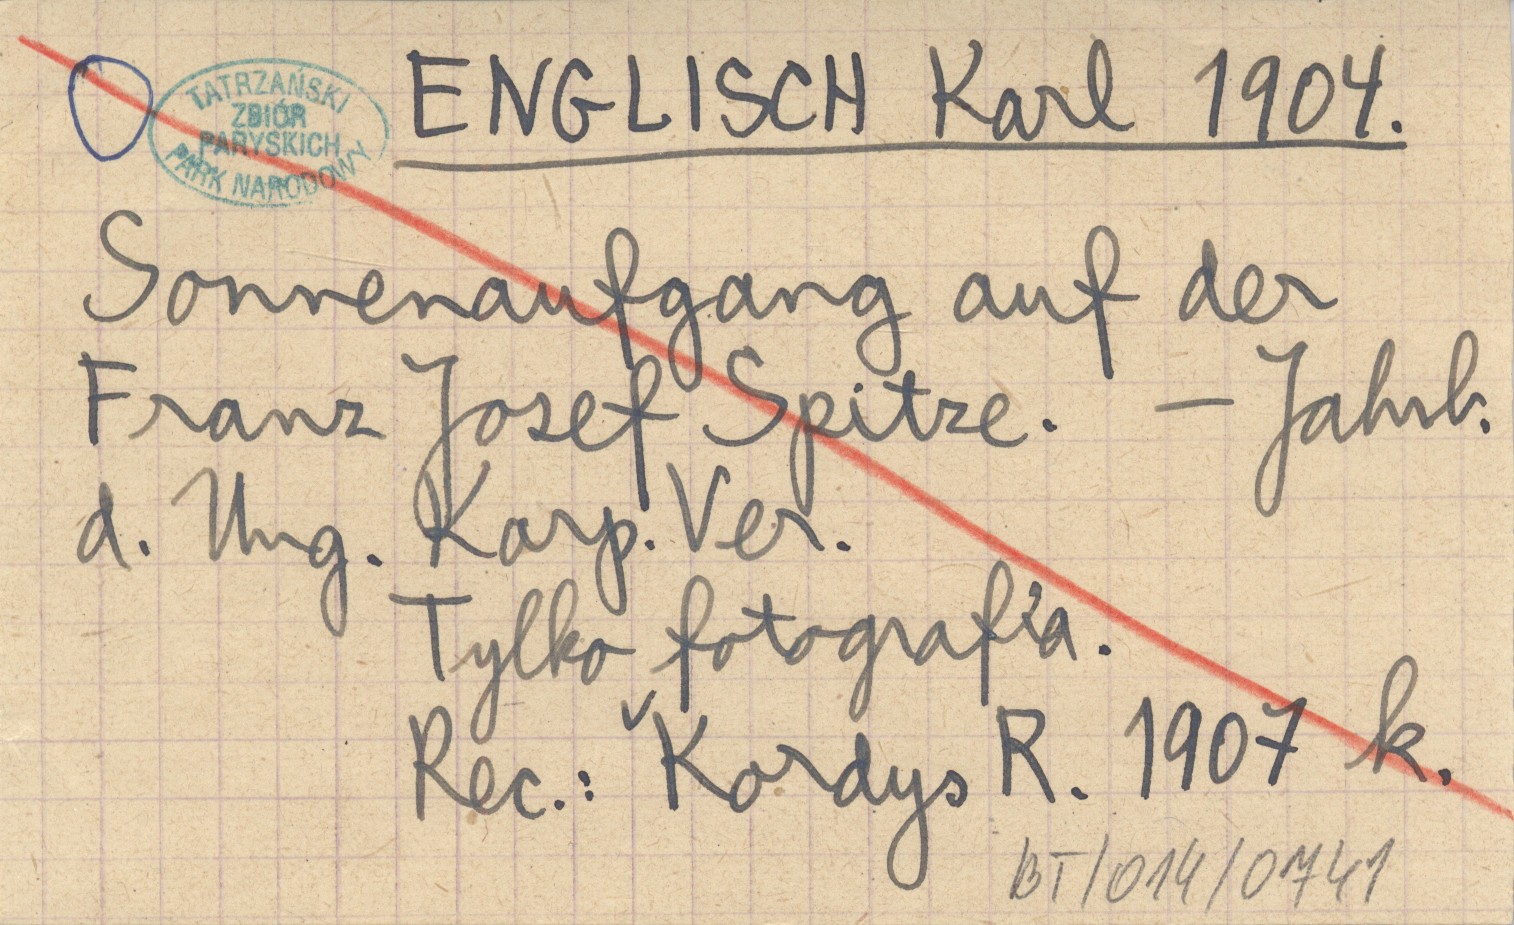 TATRZAŃSKI
ZBIÓR
PARYSKICH
PARK NARODOWY
ENGLISCH Karl 1904.
Sonnenaufgang auf der
Franz Josef Spitze. — Jahrb.
d. Ung. Karp. Ver.
Tylko fotografia.
Rec.: Kordys R. 1907 k.
BT/014/0741